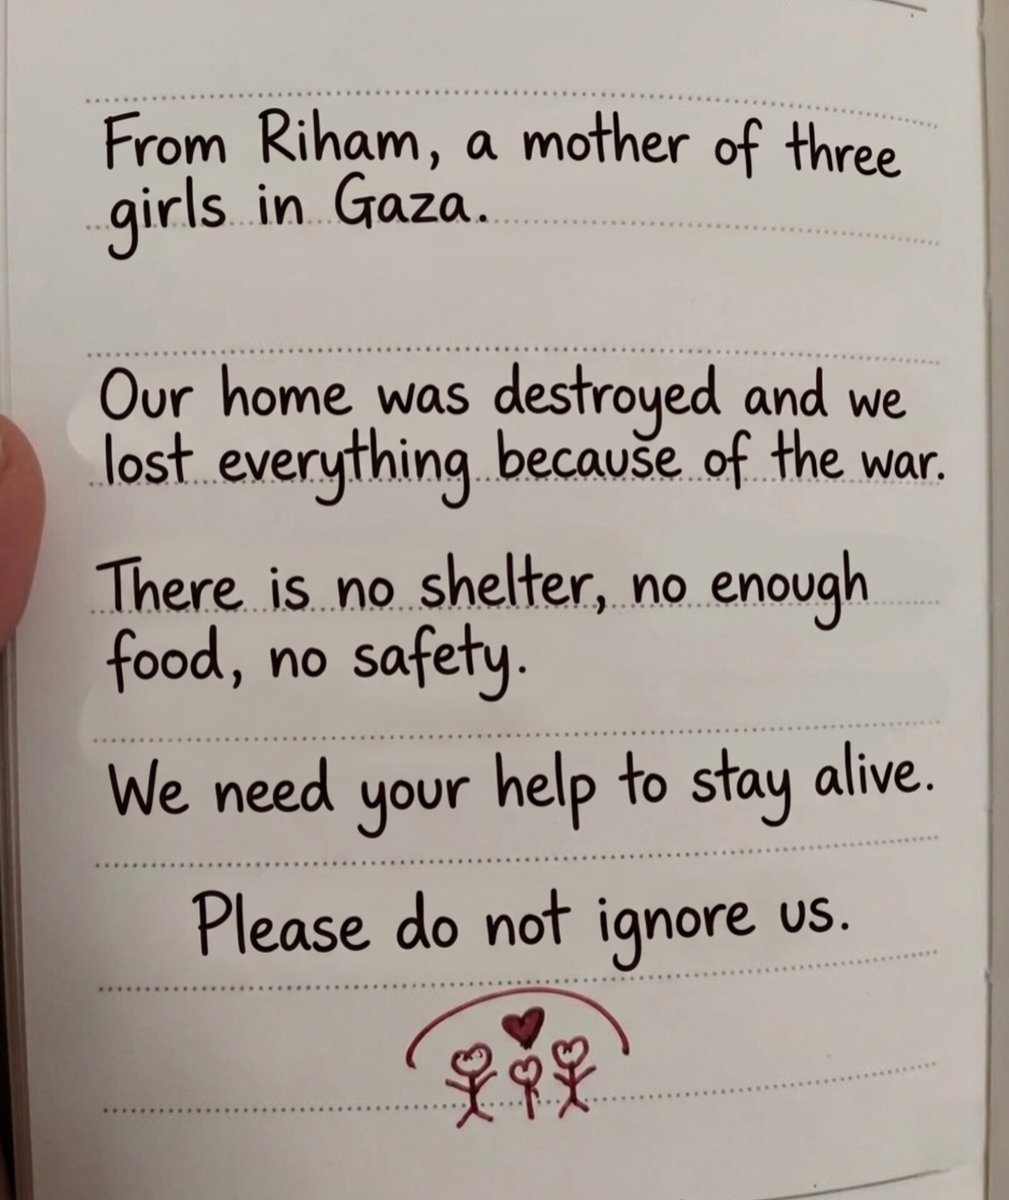 From Riham, a mother of three
girls in Gaza.
Our home was destroyed and we
lost everything because of the war.
There is no shelter, no enough
food, no safety.
We need your help to stay alive.
Please do not ignore us.